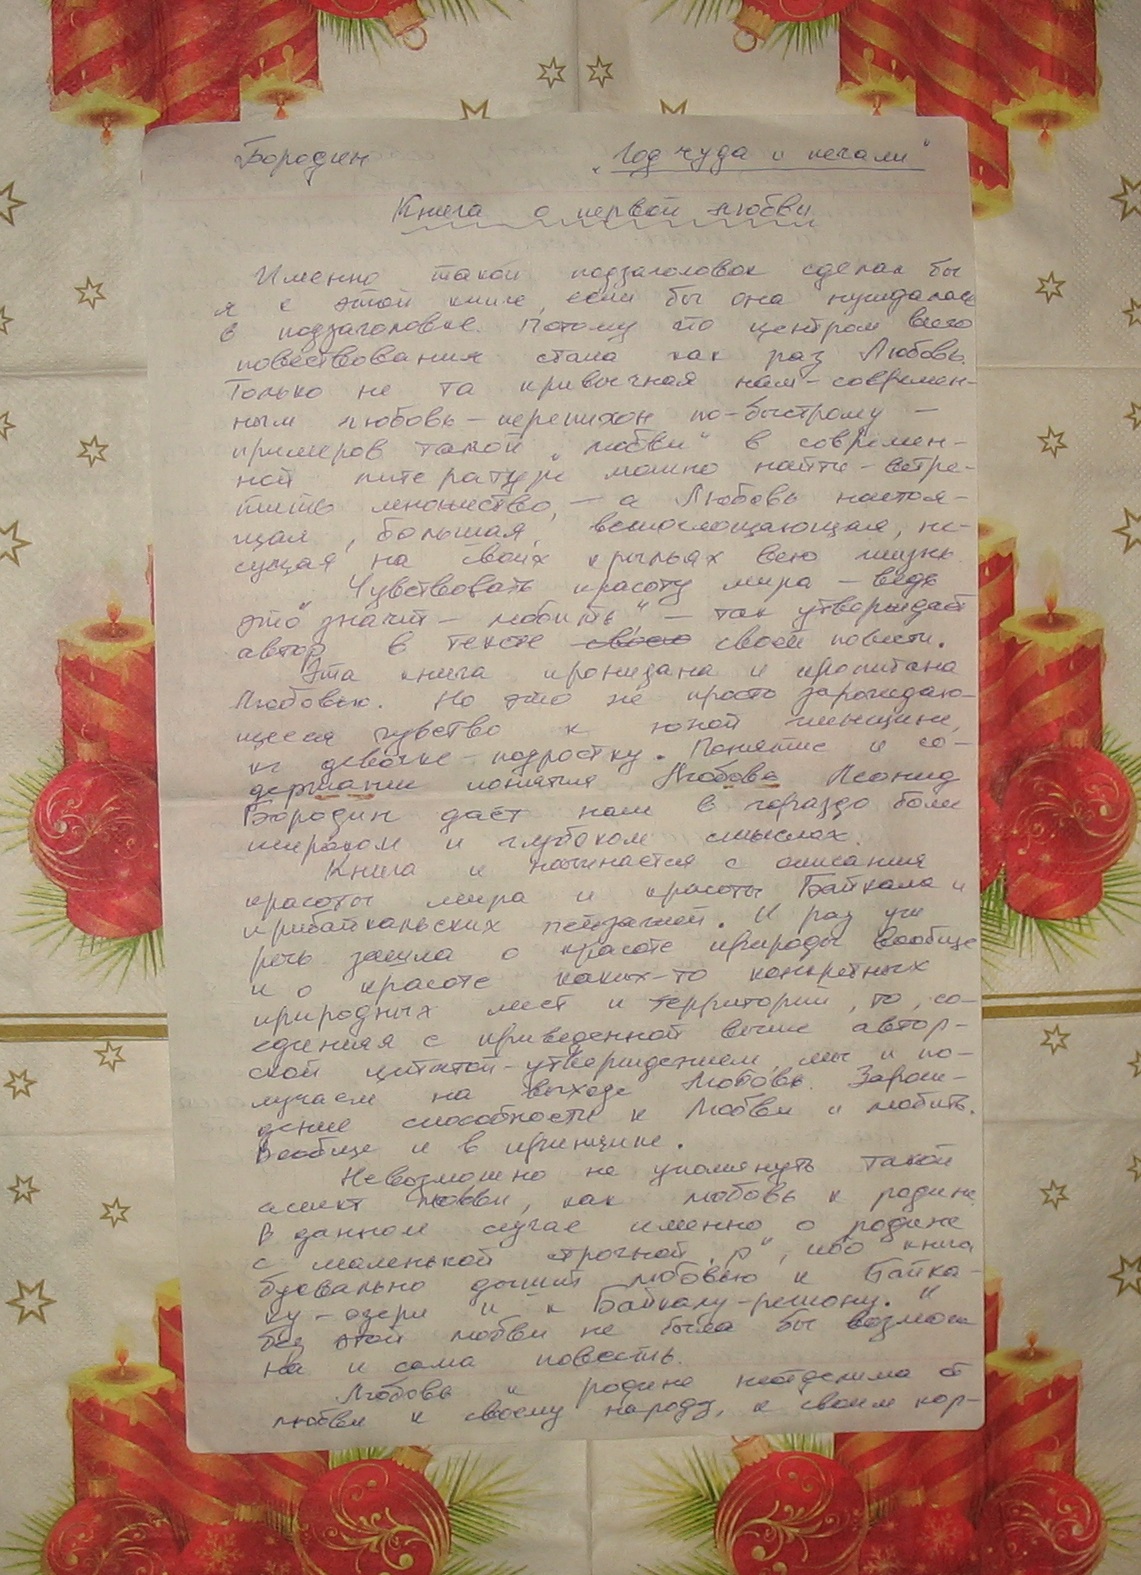 Бородин „Год чуда и печали“
Книга о первой любви
Именно такой подзаголовок сделал бы
я к этой книге, если бы она нуждалась
в подзаголовке. Потому что центром всего
повествования стала как раз Любовь.
Только не та привычная нам – современ-
ным любовь – перепихон по-быстрому –
примеров такой „любви“ в современ-
ной литературе можно найти – встре-
тить множество, – а Любовь настоя-
щая, большая, всепоглощающая, не-
сущая на своих крыльях всю жизнь.
Чувствовать красоту мира – ведь
это значит – любить“ – так утверждает
автор в тексте своею своей повести.
Эта книга пронизана и пропитана
Любовью. Но это не просто зарождаю-
щееся чувство к юной женщине,
к девочке-подростку. Понятие и со-
держание понятия Любовь Леонид
Бородин даёт нам в гораздо более
широком и глубоком смыслах.
Книга и начинается с описания
красоты мира и красоты Байкала и
прибайкальских пейзажей. И раз уж
речь зашла о красоте природы вообще
и о красоте каких-то конкретных
природных мест и территорий, то, со-
единяя с приведенной выше автор-
ской цитатой-утверждением, мы и по-
лучаем на выходе Любовь. Зарож-
дение способности к Любви и любить.
Вообще и в принципе.
Невозможно не упомянуть такой
аспект любви, как любовь к родине.
В данном случае именно о родине
с маленькой строчной „р“, ибо книга
буквально дышит любовью к Байка-
лу-озеру и к Байкалу-региону. И
без этой любви не была бы возмож
на и сама повесть.
Любовь к родине неотделима от
любви к своему народу, к своим кор-